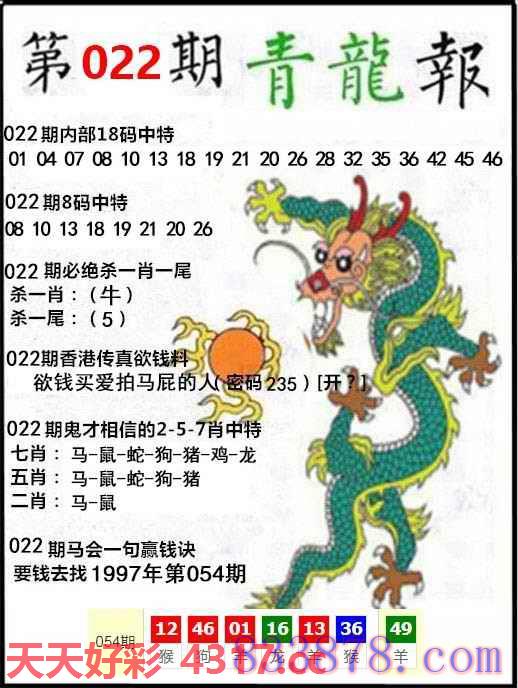 第022期青龍報
022期内部18码中特
01 04 07 08 10 13 18 19 21 20 26 28 32 35 36 42 45 46
022期8码中特
08 10 13 18 19 21 20 26
022期必绝杀一肖一尾
杀一肖：（牛）
杀一尾：（5）
022期香港传真欲钱料
欲钱买爱拍马屁的人（密码235）[开？]
022期鬼才相信的2-5-7肖中特
七肖：马-鼠-蛇-狗-猪-鸡-龙
五肖：马-鼠-蛇-狗-猪
二肖：马-鼠
022期马会一句赢钱诀
要钱去找1997年第054期
054期 12 46 01 16 13 36 49
猴 狗 羊 龙 羊 猴 羊
天天好彩 4317.cc